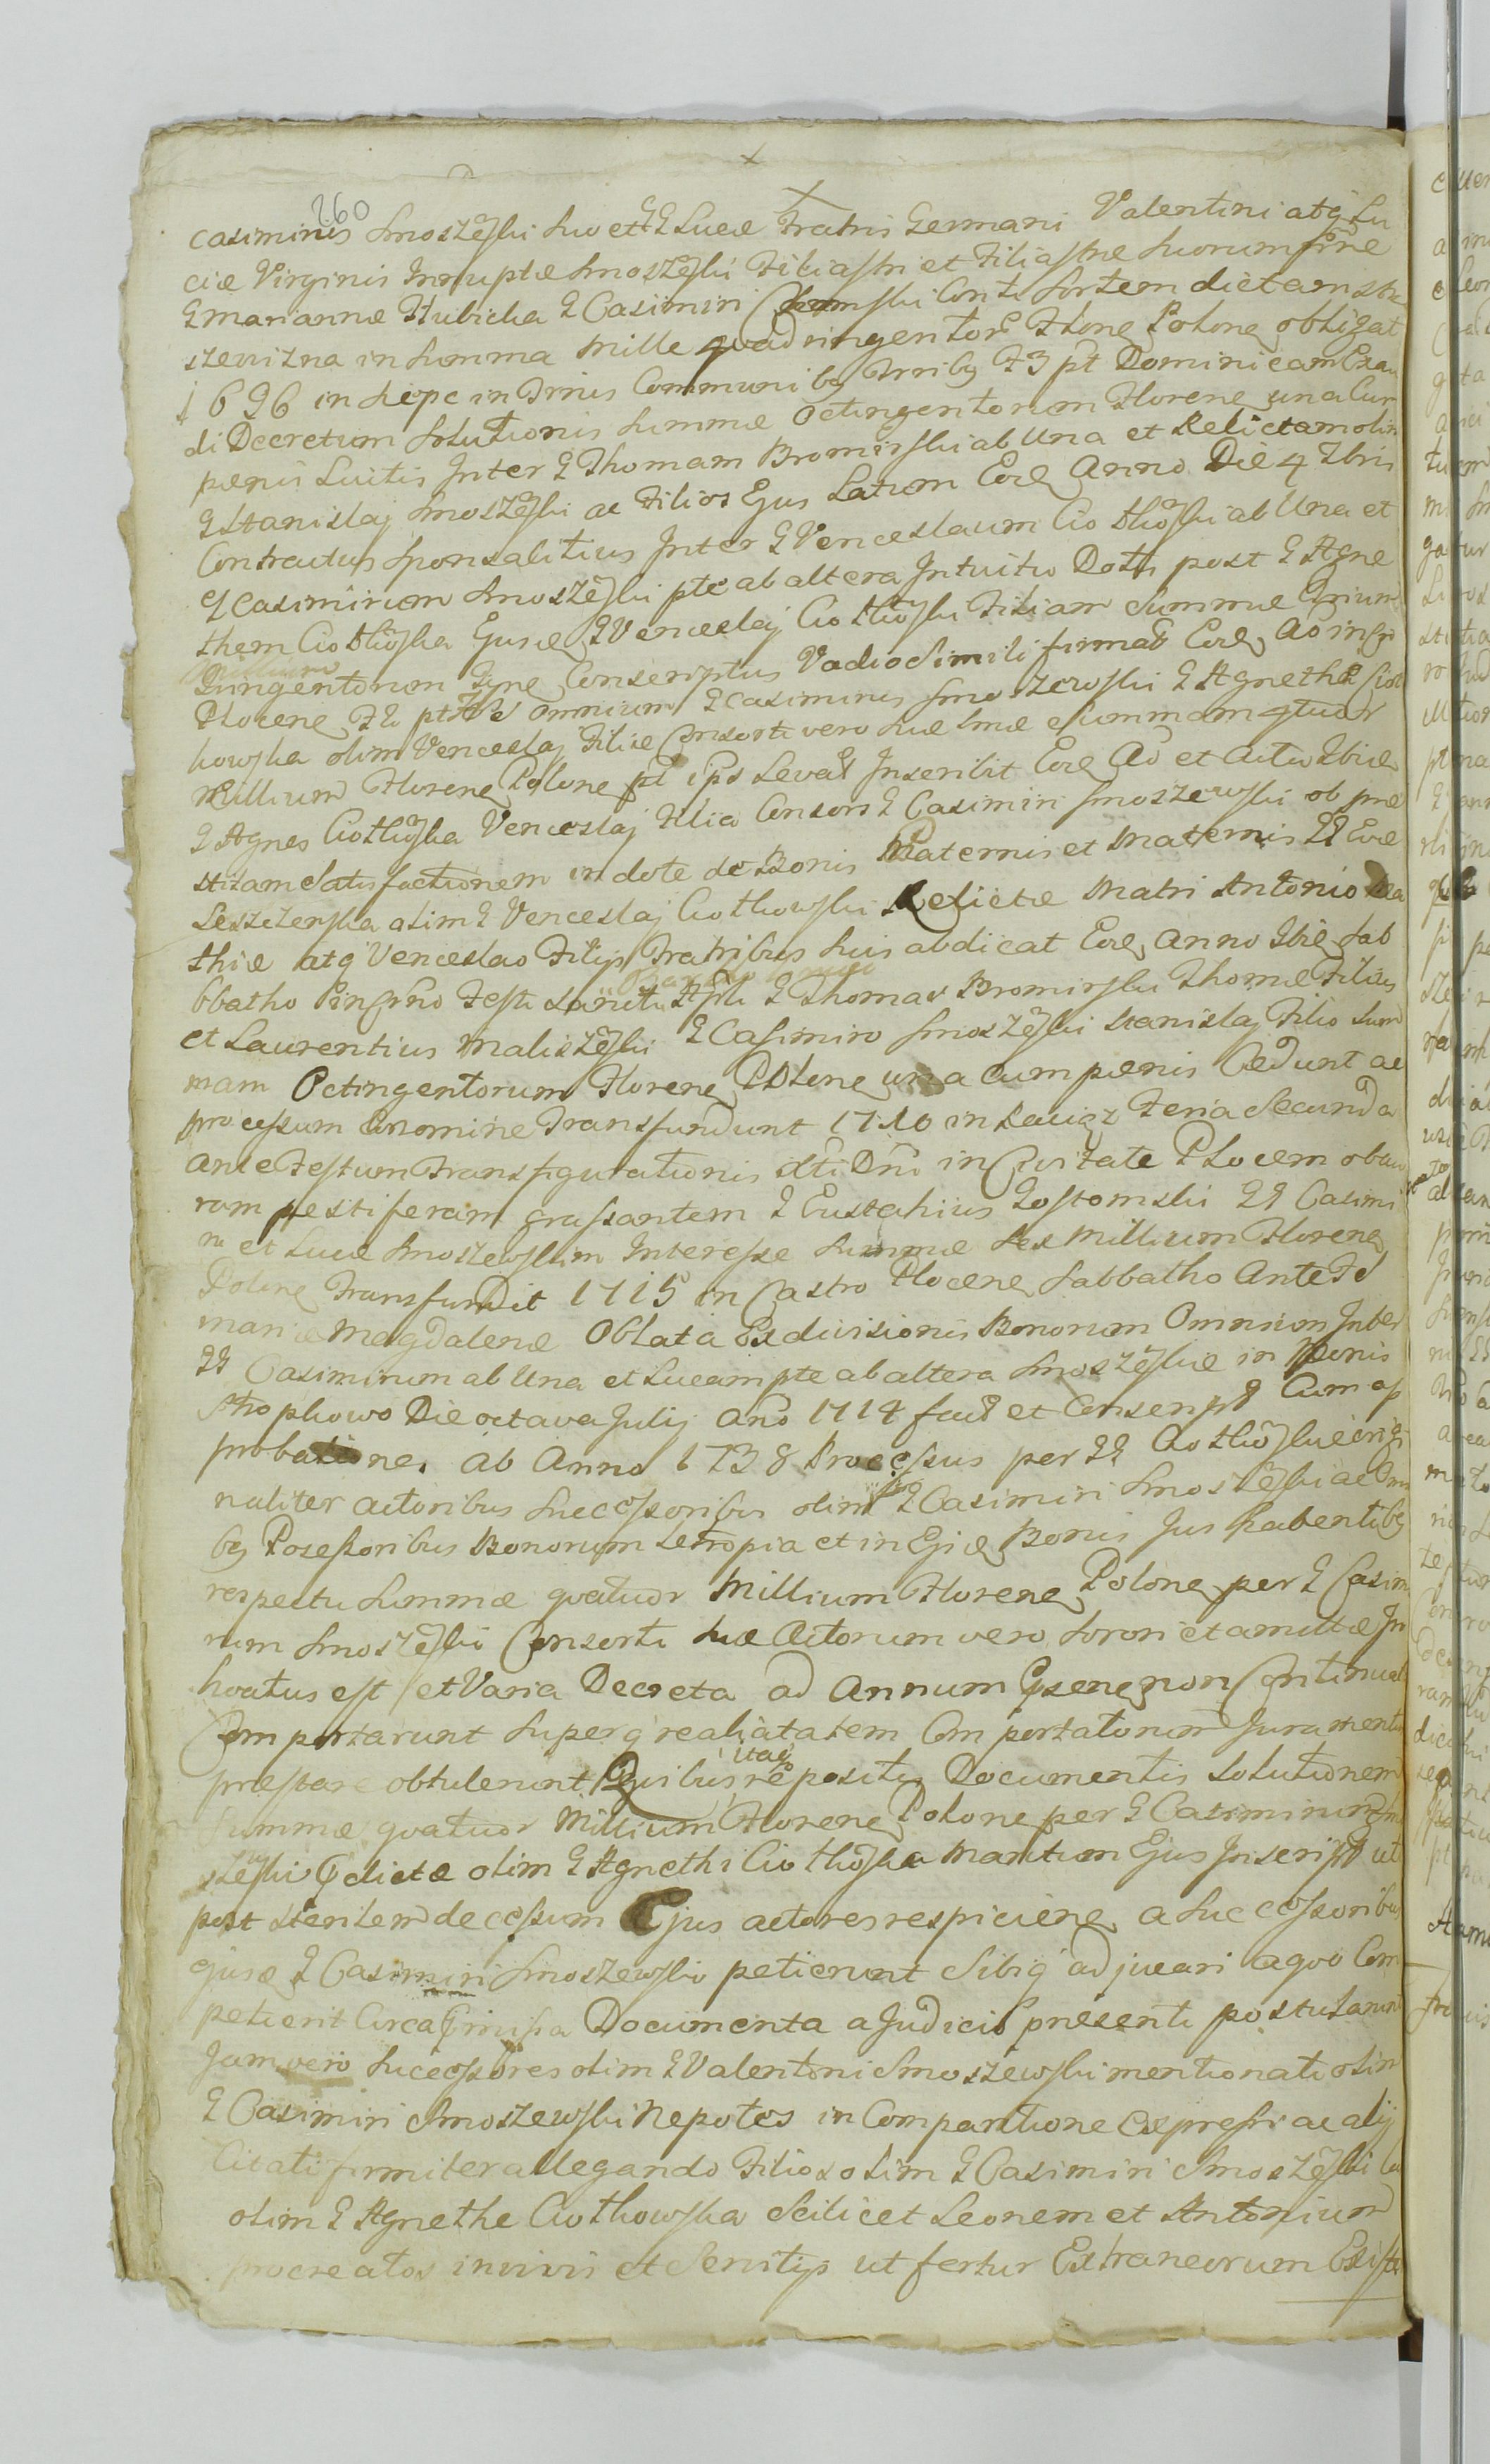 260
Casimirus Smoszewski suo et GG Lucæ Fratris Germani Valentini atq Lu
ciæ Virginis Innuptæ Smoszewski Filiastri et Filiastræ suorum
G Mariannæ Hubicka G Casimiri Conti sortem dictam
in summa Mille quadringentor Flone Polone obligat
1696 in Liepc in Trinis Communibq Trribq F3 pt Dominicam Exau
di Decretum Solutionis summæ Octingentorum Florene una Cum
pænis Luitis Inter G Thomam Bromirski ab Una et Relictam olim
G Stanislaj Smoszewski ac Filios Ejus Latum Eod Anno Die 4 7bris
Contractus Sponsalitius Inter G Venceslaum Ciotkowski ab Una et
G Casimirum Smoszewski pte ab altera Intuitu Dotis post G Agne
them Ciotkowska Ejusd G Venceslaj Ciotkowski Filiam Summæ Trium
Millium
Quingentorum Conscriptus Vadio Simili firmat Eod Ao in
Plocene F2 pt Fe Omnium G Casimirus Smoszewski G Agnethæ Ciot
kowska olim Venceslaj Filiæ Consorti vero suæ Summam quatuor
Millium Florene Polone pt ips Levat Inscribit Eod Ao et Actu Ibid
G Agnes Ciotkowska Venceslaj Filia Consors G Casimiri Smoszewski ob præ
stitam Satisfactionem in dote de Bonis Paternis et Maternis GG Evæ
Leszczenska olim G Venceslaj Ciotkowski Relictæ Matri Antonio Ma
thiæ atq Venceslao Filijs Fratribus suis abdicat Eod Anno Ibid Sab
batho in Festi Sancti Apli G Thomas Bromirski Thomæ Filius
et Laurentius Maliszewski G Casimiro Smoszewski Stanislaj Filio Sum
mam Octingentorum Florene Polone una cum pænis Cedunt ac
processum eonomine Transfundunt 1710 in Raciąz Feria Secunda
ante Festum Transfigurationis Xti Dni in Civitate Plocen ob au
ram pestiferam grassantem G Eustahius Gostomski GG Casimi
ro et Lucæ Smoszewskim Interesse Summæ Sex Millium Florene
Polone Transfundit 1715 in Castro Plocene Sabbatho Ante Fe
Mariæ Magdalenæ Oblata Exdivisionis Bonorum Omnium Inter
GG Casimirum ab Una et Lucam pte ab altera Smoszewskie in Bonis
Strophowo Die octava Julij Ano 1714 fact et Conscript Cum ap
probatione. Ab Anno 1738 Processus per GG Ciotkowskie origi
naliter actoribus Successoribus olim G Casimiri Smoszewski ac Omni
bq Possessoribus Bonorum Setropia et in Ejsd Bonis Jus habentibq
respectu Summæ quatuor Millium Florene Polone per G Casimi
rum Smoszewski Consorti suæ Actorum vero Sorori et amittæ In
hoatus est et Varia Decreta ad Annum Psene non Continuat
Comportarunt Superq realitatem Comportatorum Juramenta
præstare obtulerunt Quibus itaq repositis Documentis Solutionem
Summæ quatuor Millium Florene Polone per G Casimirum Smo
szewski dictæ olim G Agnethi Ciotkowska Maritum Ejus Inscript ut
post Sterilem decessum Ejus actores respiciene a Successoribus
Ejusd G Casimiri Smoszewski petierunt Sibiq adjucari aquo Com
petierit Circa Documenta a Judicio presenti postularunt
Jam vero Sucessores olim G Valentini Smoszewski mentionati olim
G Casimiri Smoszewski Nepotes in Comparitione Expressi ac alij
Citati firmiter allegando Filios olim G Casimiri Smoszewski
olim G Agnethe Ciotkowska Scilicet Leonem et Antonium
procreatos in vivis et Servitijs ut fertur Extraneorum Existe